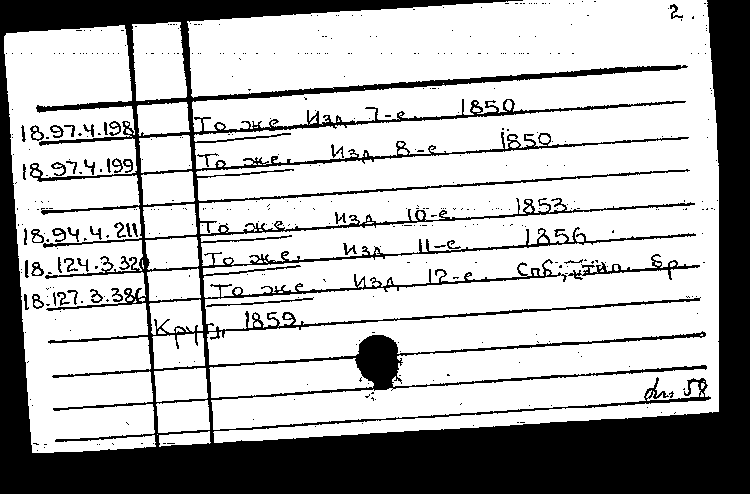 2.
18.97.4.198. То же Изд. 7-е. 1850.
18.97.4.199 То же. Изд 8-е 1850
18.94.4.211 То же. Изд 10-е. 1853
18.124.3.320 То же. Изд 11-е. 1856
18.127.3.386 То же. Изд 12-е. Спб., тип. бр.
1859.
58